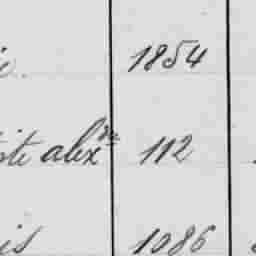 ie. 1854
ste alex^dre 112
is 1086